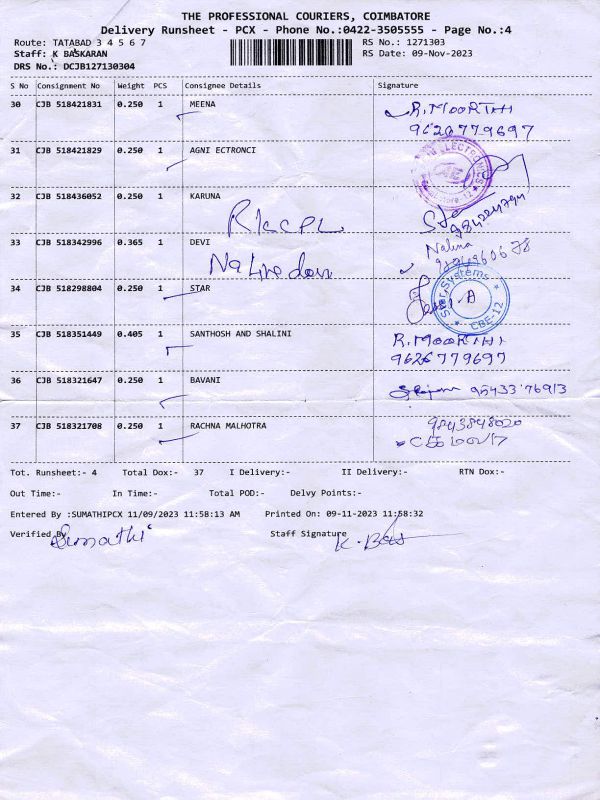 THE PROFESSIONAL COURIERS, COIMBATORE
Delivery Runsheet - PCX - Phone No.:0422-3505555 - Page No.:4
Route: TATABAD 3 4 5 6 7 RS No.: 1271303
Staff: K BASKARAN RS Date: 09-Nov-2023
DRS No.: DCJB127130304
S No Consignment No Weight PCS Consignee Details Signature
30 CJB 518421831 0.250 1 MEENA R.MOORTHI
9626779697
31 CJB 518421829 0.250 1 AGNI ECTRONCI
32 CJB 518436052 0.250 1 KARUNA
33 CJB 518342996 0.365 1 DEVI Nalina
34 CJB 518298804 0.250 1 STAR Star Systems CBE-12
35 CJB 518351449 0.405 1 SANTHOSH AND SHALINI R.MOORTHI
9626779697
36 CJB 518321647 0.250 1 BAVANI 9543376913
37 CJB 518321708 0.250 1 RACHNA MALHOTRA 9843848020
Tot. Runsheet:- 4 Total Dox:- 37 I Delivery:- II Delivery:- RTN Dox:-
Out Time:- In Time:- Total POD:- Delvy Points:-
Entered By :SUMATHIPCX 11/09/2023 11:58:13 AM Printed On: 09-11-2023 11:58:32
Verified By Staff Signature
Sumathi K. Bas